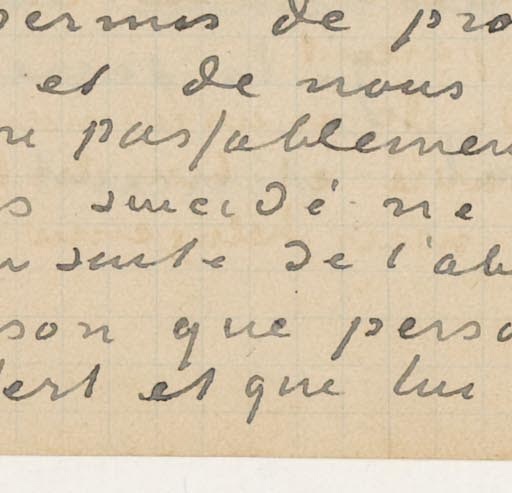 permis de pro
et de nous
re passablemen
s suicidé ne
suite de l'ab
son que perso
et que lui